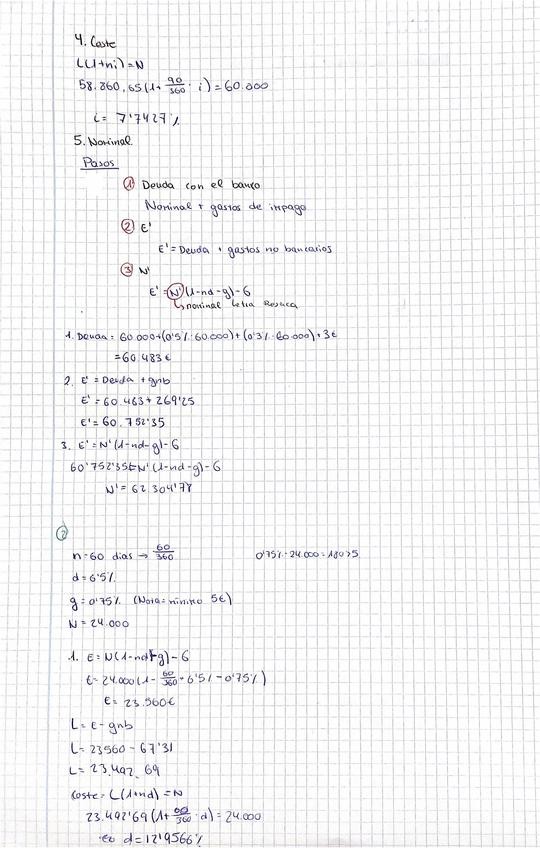 4. Coste
L(1+ni)=N
58.860,65(1+ 90/360 · i) = 60.000
i = 7'7427%
5. Nominal
Pasos
① Deuda con el banco
Nominal + gastos de impago
② E'
E' = Deuda + gastos no bancarios
③ N'
E' = N'(1-nd-g)-G
↳ nominal letra Resaca
1. Deuda = 60.000+(0'5%·60.000)+(0'3%·60.000)+3€
=60.483€
2. E' = Deuda + gnb
E' = 60.483+269'25
E' = 60.752'35
3. E' = N'(1-nd-g)-G
60'752'35=N'(1-nd-g)-G
N' = 62.304'78
②
n=60 dias → 60/360 0'75%·24.000=180>5
d=6'5%
g=0'75% (Nota=minimo 5€)
N=24.000
1. E=N(1-nd-g)-G
E=24.000(1- 60/360 · 6'5% -0'75%)
E=23.560€
L=E-gnb
L=23560-67'31
L=23.492.69
Coste= L(1+nd)=N
23.492'69(1+ 60/360 · d)=24.000
d=12'9566%